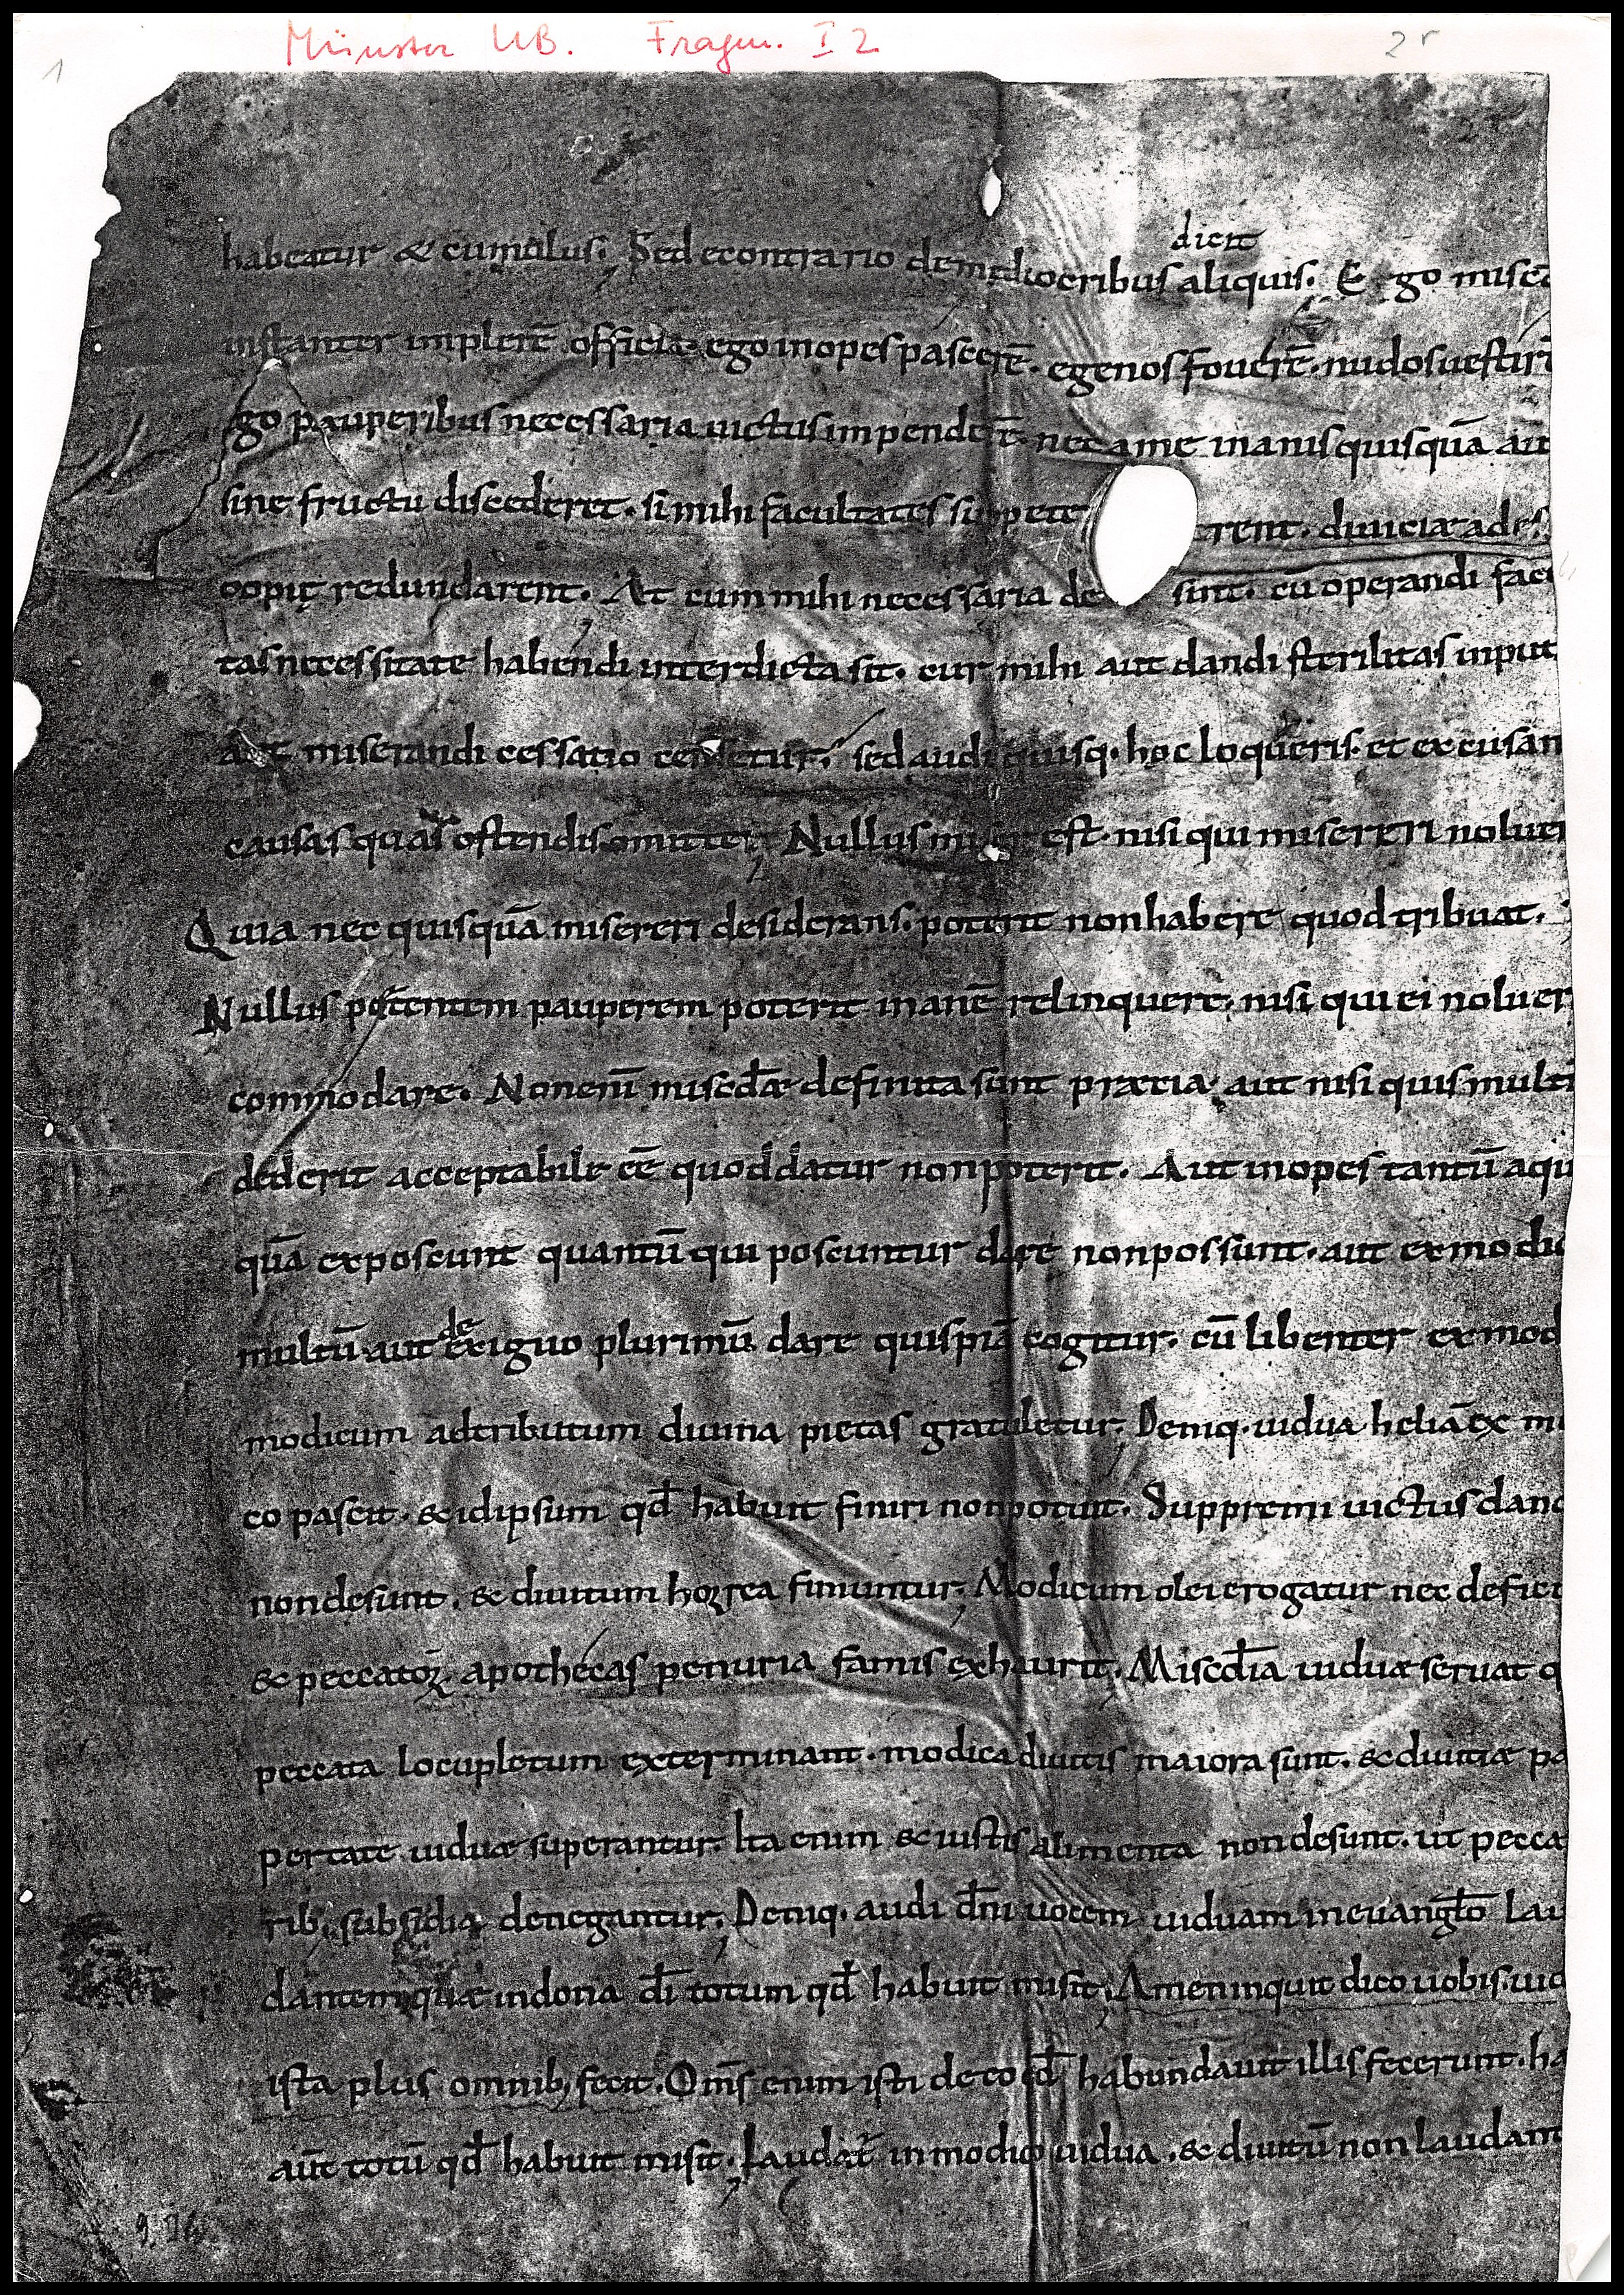 Münster UB. Fragm. I 2
2r
1
dicit
habeatur & cumulus; Sed econtrario demediocribus aliquis. Ego misē
instanter implerē officia. ego inopes pascerē. egenos fouerē. nudos uestirē
go pauperibus necessaria uictus impenderē. nec a me inanis quisquā aut
sine fructu discederet. si mihi facultates suppeterent. diuiciae ades
copię redundarent. At cum mihi necessaria desint. cū operandi facul
tas necessitate habendi interdicta sit. cur mihi aut dandi sterilitas input
aut miserandi cessatio censetur; sed audi quisq· hoc loqueris. et excusan
causas quas ostendis omitte; Nullus miser est. nisi qui misereri noluer
Quia nec quisquā misereri desiderans. poterit non habere quod tribuat.
Nullus petentem pauperem poterit inanē relinquere; nisi qui ei noluer
commodare. Non enī miscd̄ae definita sunt praetia; aut nisi quis multū
dederit acceptabile eē quod datur non poterit. Aut inopes tantū a qui
quā exposcunt quantū qui poscuntur dare non possunt. aut ex modic
de
multū aut exiguo plurimū dare quispiā cogitur. cū libenter ex mod
modicum adtributum diuina pietas gratuletur; Deniq· uidua heliā ex mo
co pascit. & id ipsum qd̄ habuit finiri non potuit. Suppremi uictus dand
non desunt. & diuitum horrea finiuntur; Modicum olei erogatur nec defici
& peccatoꝝ apothecas penuria famis exhaurit; Miscd̄ia uiduae seruat q
peccata locupletum exterminant. modica diuitis maiora sunt. & diuitiae pau
pertate uiduae superantur. Ita enim & iustis alimenta non desunt. ut pecca
rib; subsidia denegantur; Deniq· audi dn̄i uocem uiduam in euanglō lau
dantem quae in dona dī totum qd̄ habuit misit; Amen inquit dico uobis. uid
ista plus omnib; fecit. Om̄s enim isti de eo qd̄ habundauit illis fecerunt. hā
aut̄ totū qd̄ habuit misit; Laudat̄ in modico uidua. & diuitū non laudant